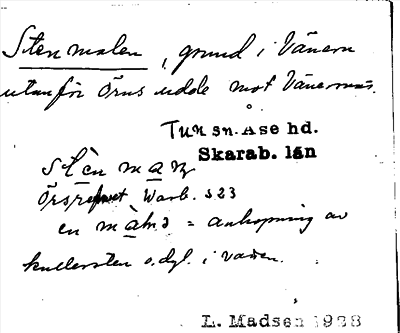 Stenmalen, grund i Vänern
utanför Örns udde mot Vänersnäs.
Tun sn. Åse hd.
Skarab. län
Warb. S 23
en = anhopning av
kullersten o.dyl. i vatten.
L. Madsen 1928